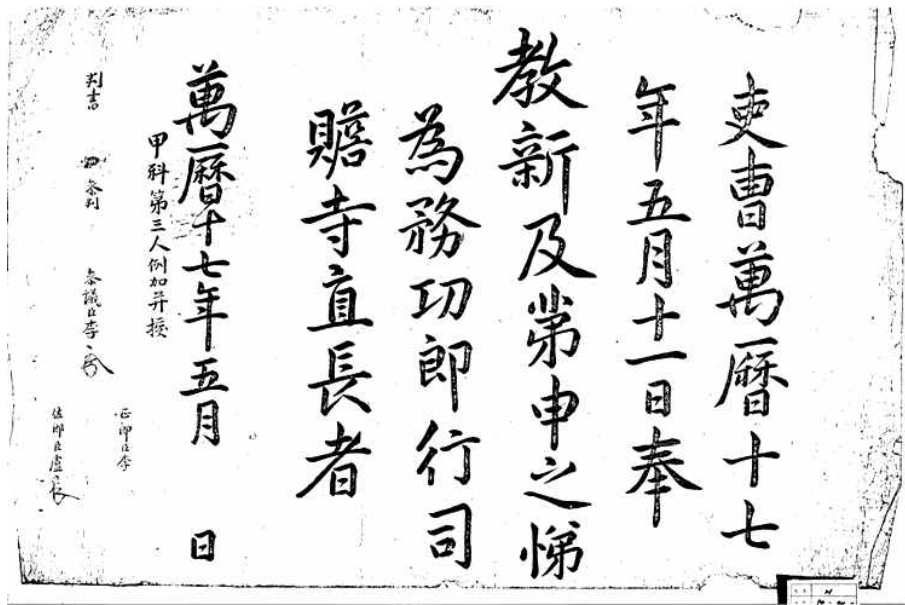 吏曹萬曆十七
年五月十一日奉
教新及第申之悌
為務功郎行司
贍寺直長者
萬曆十七年五月 日
甲科第三人例加幷授
判書 參判 參議臣李
正郎臣李
佐郎臣盧